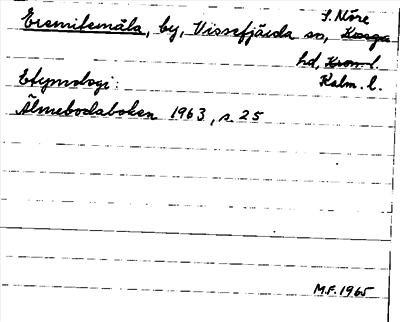 S. Möre
Eremitemåla, by, Vissefjärda sn, Konga
hd, Kron. l.
Kalm. l.
Etymologi:
Älmebodaboken 1963, s. 25
M.F. 1965